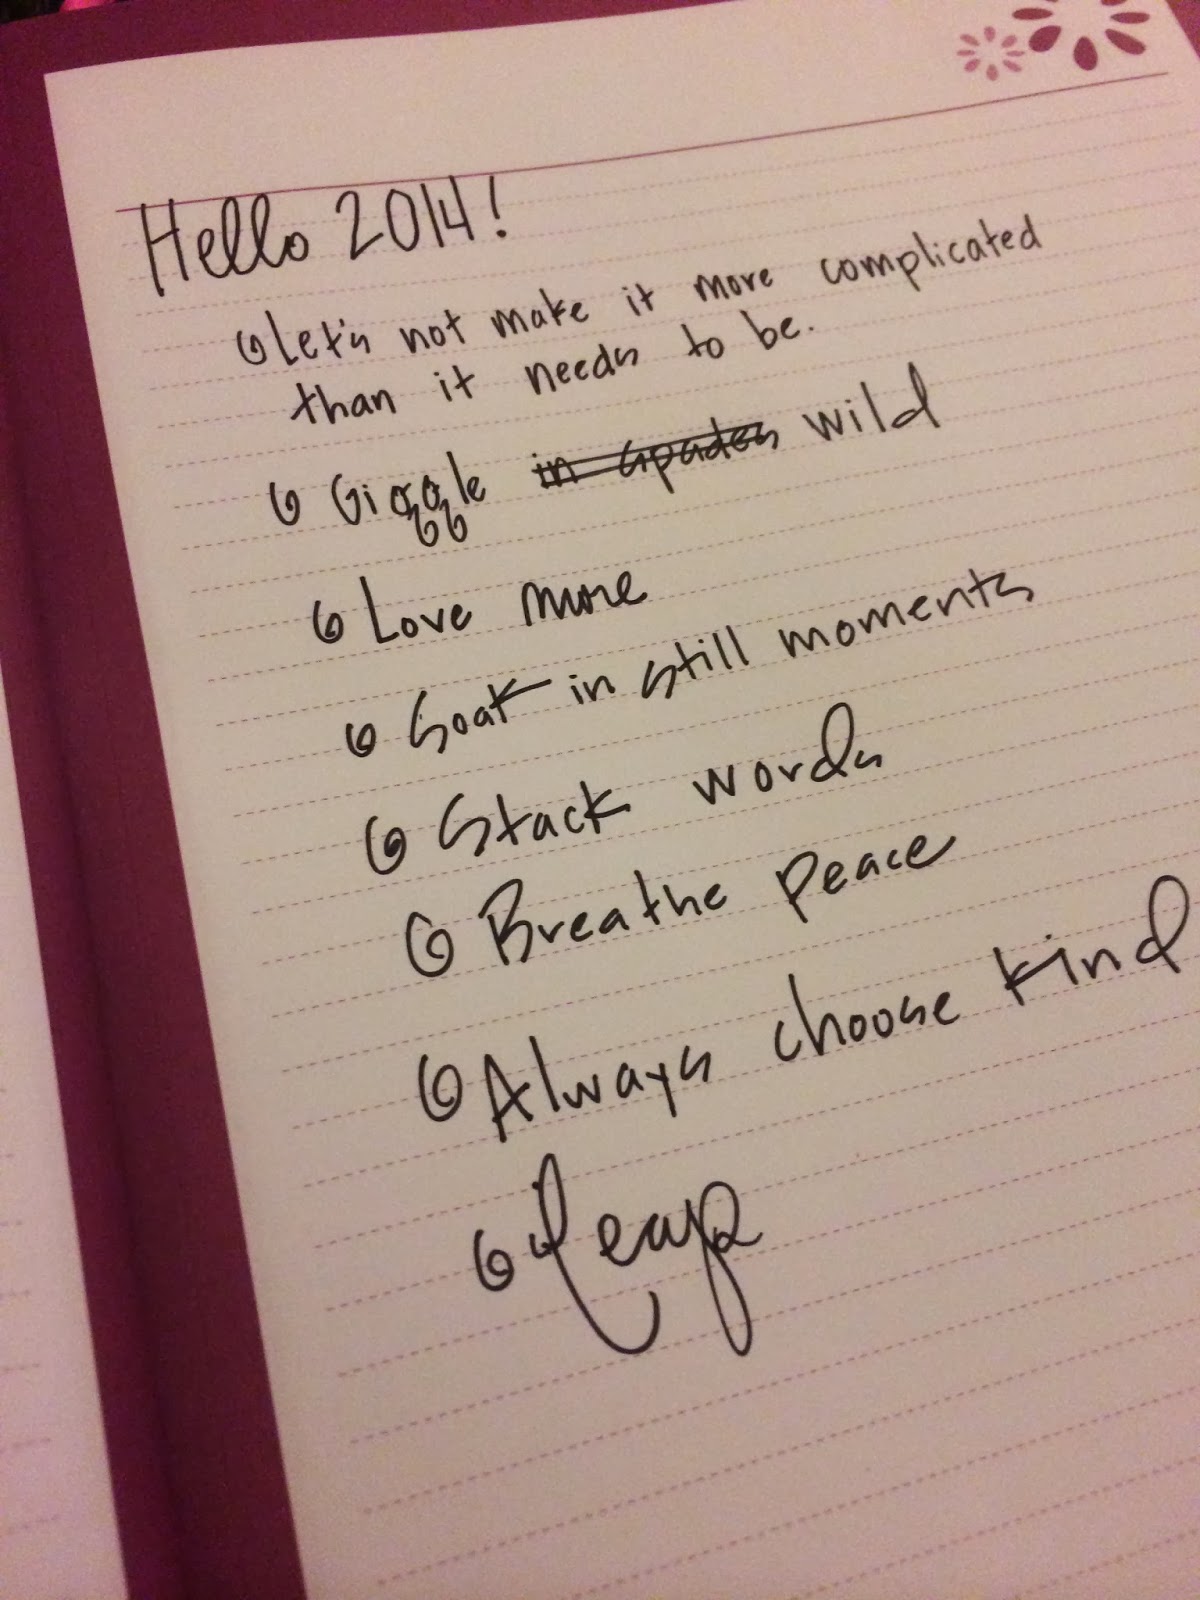 Hello 2014!
Let's not make it more complicated
than it needs to be.
Giggle in spades wild
Love more
Soak in still moments
Stack words
Breathe peace
Always choose kind
Leap